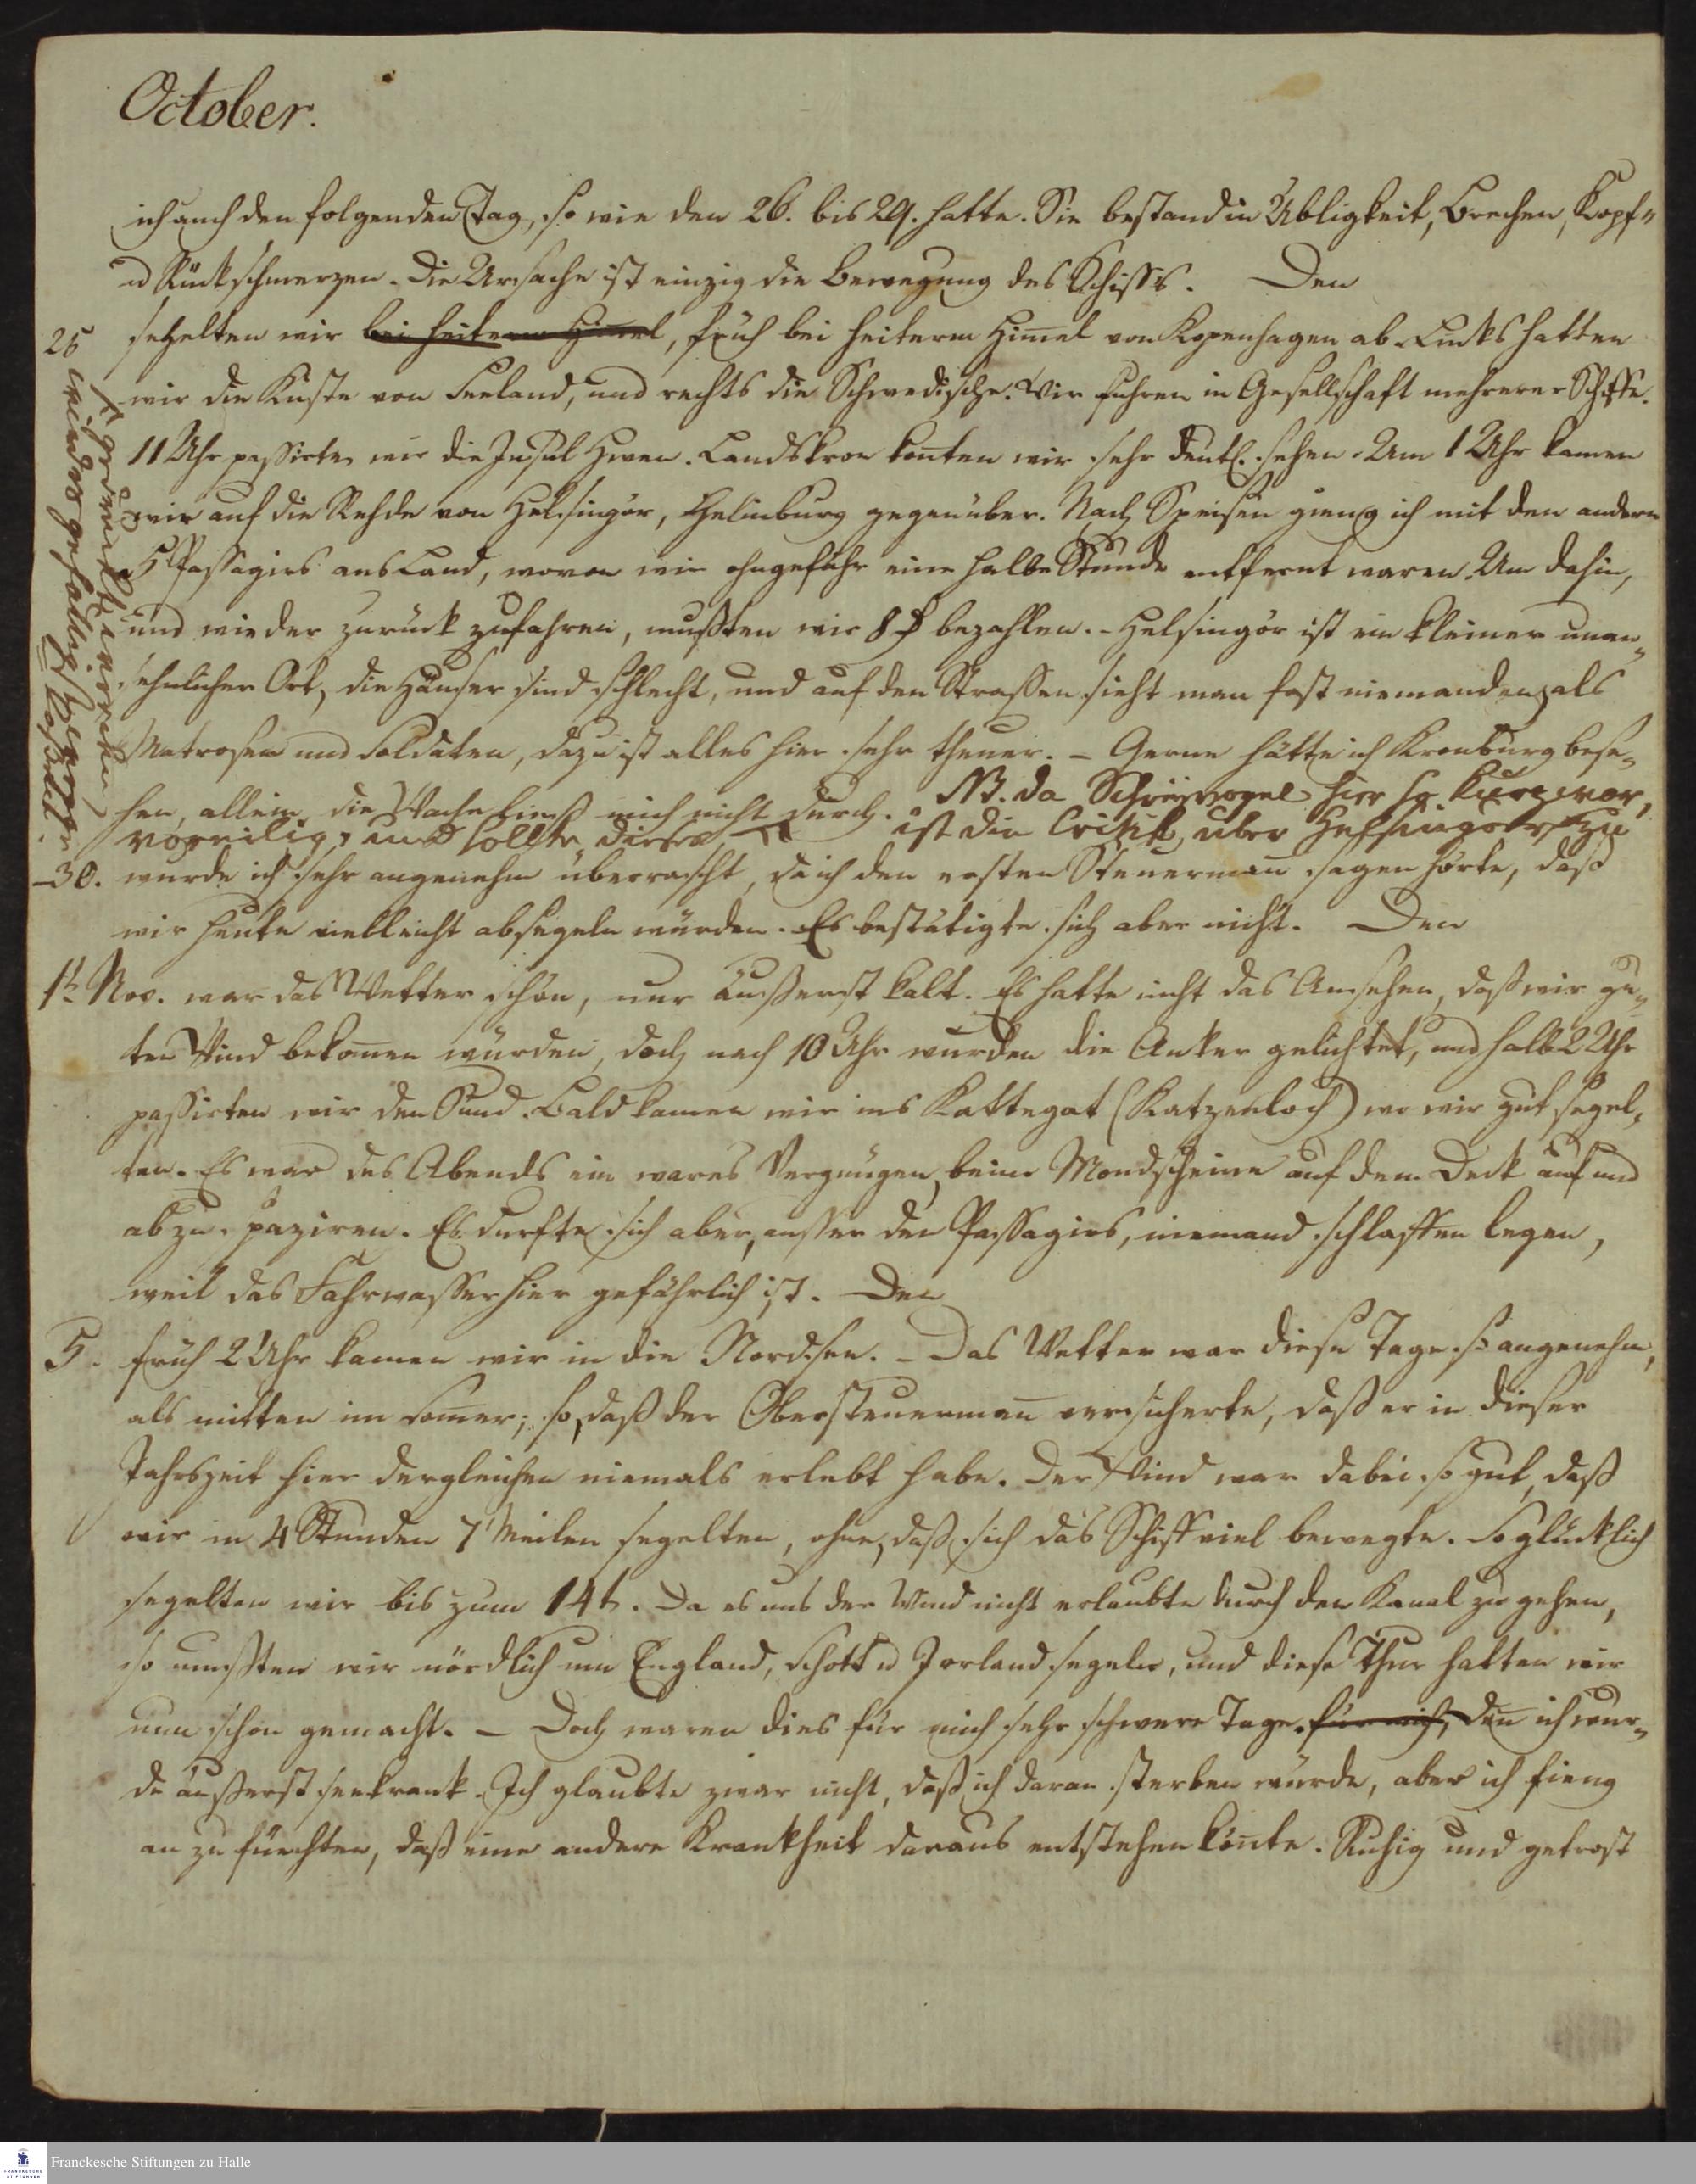 October.
ich auch den folgenden Tag, so wie den 26. bis 29. hatte. Sie bestand in Übligkeit, Brechen, Kopf-
u Rückschmerzen. Die Ursache ist einzig die Bewegung des Schiffs. Den
25 segelten wir bei heiterm Himel, früh bei heiterm Himel von Kopenhagen ab. Links hatten
wir die Küste von Seeland, und rechts die Schwedische. Wir fuhren in Gesellschaft mehrerer Schiffe.
11 Uhr passirten wir die Insul Hwen. Landskron konten wir sehr deutl. sehen. Um 1 Uhr kamen
wir auf die Rehde von Helsingör, Helinburg gegenüber. Nach Speisen gieng ich mit den andern
5 Passagirs ans Land, wovon wir ohngefähr eine halbe Stunde entfernt waren. Um dahin,
und wieder zurück zufahren, mußten wir 8 bezahlen. - Helsingör ist ein kleiner unan-
sehnlicher Ort, die Häuser sind schlecht, und auf den Strassen sieht man fast niemanden, als
Matrosen und Soldaten, dazu ist alles hier sehr theuer. - Gerne hätte ich Kronburg bese-
hen, allein die Wache ließ mich nicht durch. NB. da Schreyvogel hier so kurz war,
ist die Critik über Helsingör zu
voreilig, und sollte diese
gedruckt werden,
wieder gefälligst
-30. wurde ich sehr angenehm überrascht, da ich den ersten Steuerman sagen hörte, daß
wir heute vielleicht absegeln würden. Es bestätigte sich aber nicht. Den
1t Nov. war das Wetter schön, nur äußerst kalt. Es hatte nicht das Ansehen, daß wir gu-
ten Wind bekomen würden, doch nach 10 Uhr wurden die Anker gelichtet, und halb 2 Uhr
passirten wir den Sund. Bald kamen wir ins Kattegat (Katzenloch) wo wir gut segel-
ten. Es war des Abends ein wares Vergnügen, beim Mondscheine auf dem Deck auf und
ab zu spaziren. Es durfte sich aber, ausser den Passagirs, niemand schlaffen legen,
weil das Fahrwasser hier gefährlich ist. Den
5. früh 2 Uhr kamen wir in die Nordsee. - Das Wetter war diese Tage so angenehm,
als mitten im Somer; so, daß der Obersteuerman versicherte, daß er in dieser
Jahrszeit hier dergleichen niemals erlebt habe. Der Wind war dabei so gut, daß
wir in 4 Stunden 7 Meilen segelten, ohne, daß sich das Schiff viel bewegte. So glücklich
segelten wir bis zum 14t. Da es uns der Wind nicht erlaubte durch den Kanal zu gehen,
so mußten wir nördlich um England, Schott u Irrland segeln, und diese Thur hatten wir
nun schon gemacht. - Doch waren dies für mich sehr schwere Tage. für mich, den ich wur-
de äußerst seekrank. Ich glaubte zwar nicht, daß ich daran sterben würde, aber ich fieng
an zu fürchten, daß eine andere Krankheit daraus entstehen könte. Ruhig und getrost
Franckesche Stiftungen zu Halle
FRANCKESCHE STIFTUNGEN